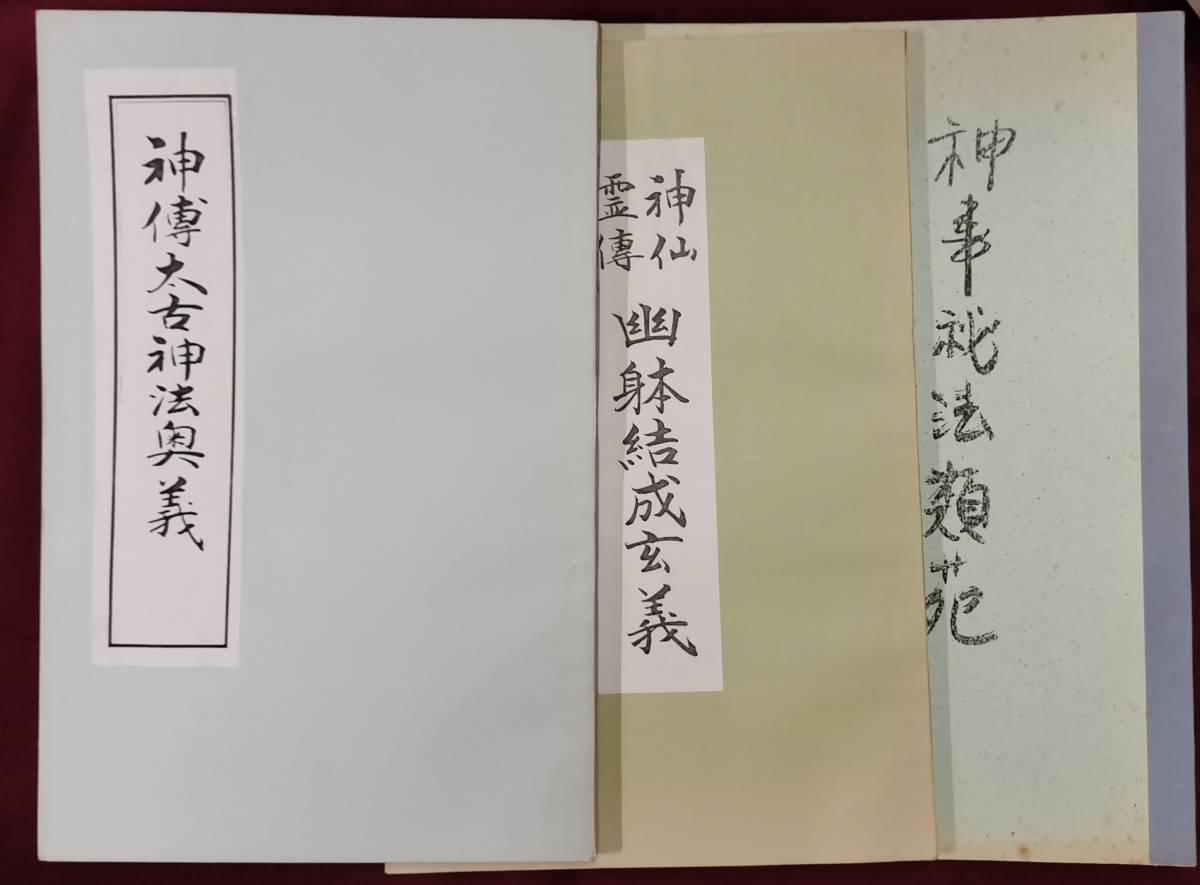 神傅太古神法奥義
神仙
霊傳
幽躰結成玄義
神事祕法類苑